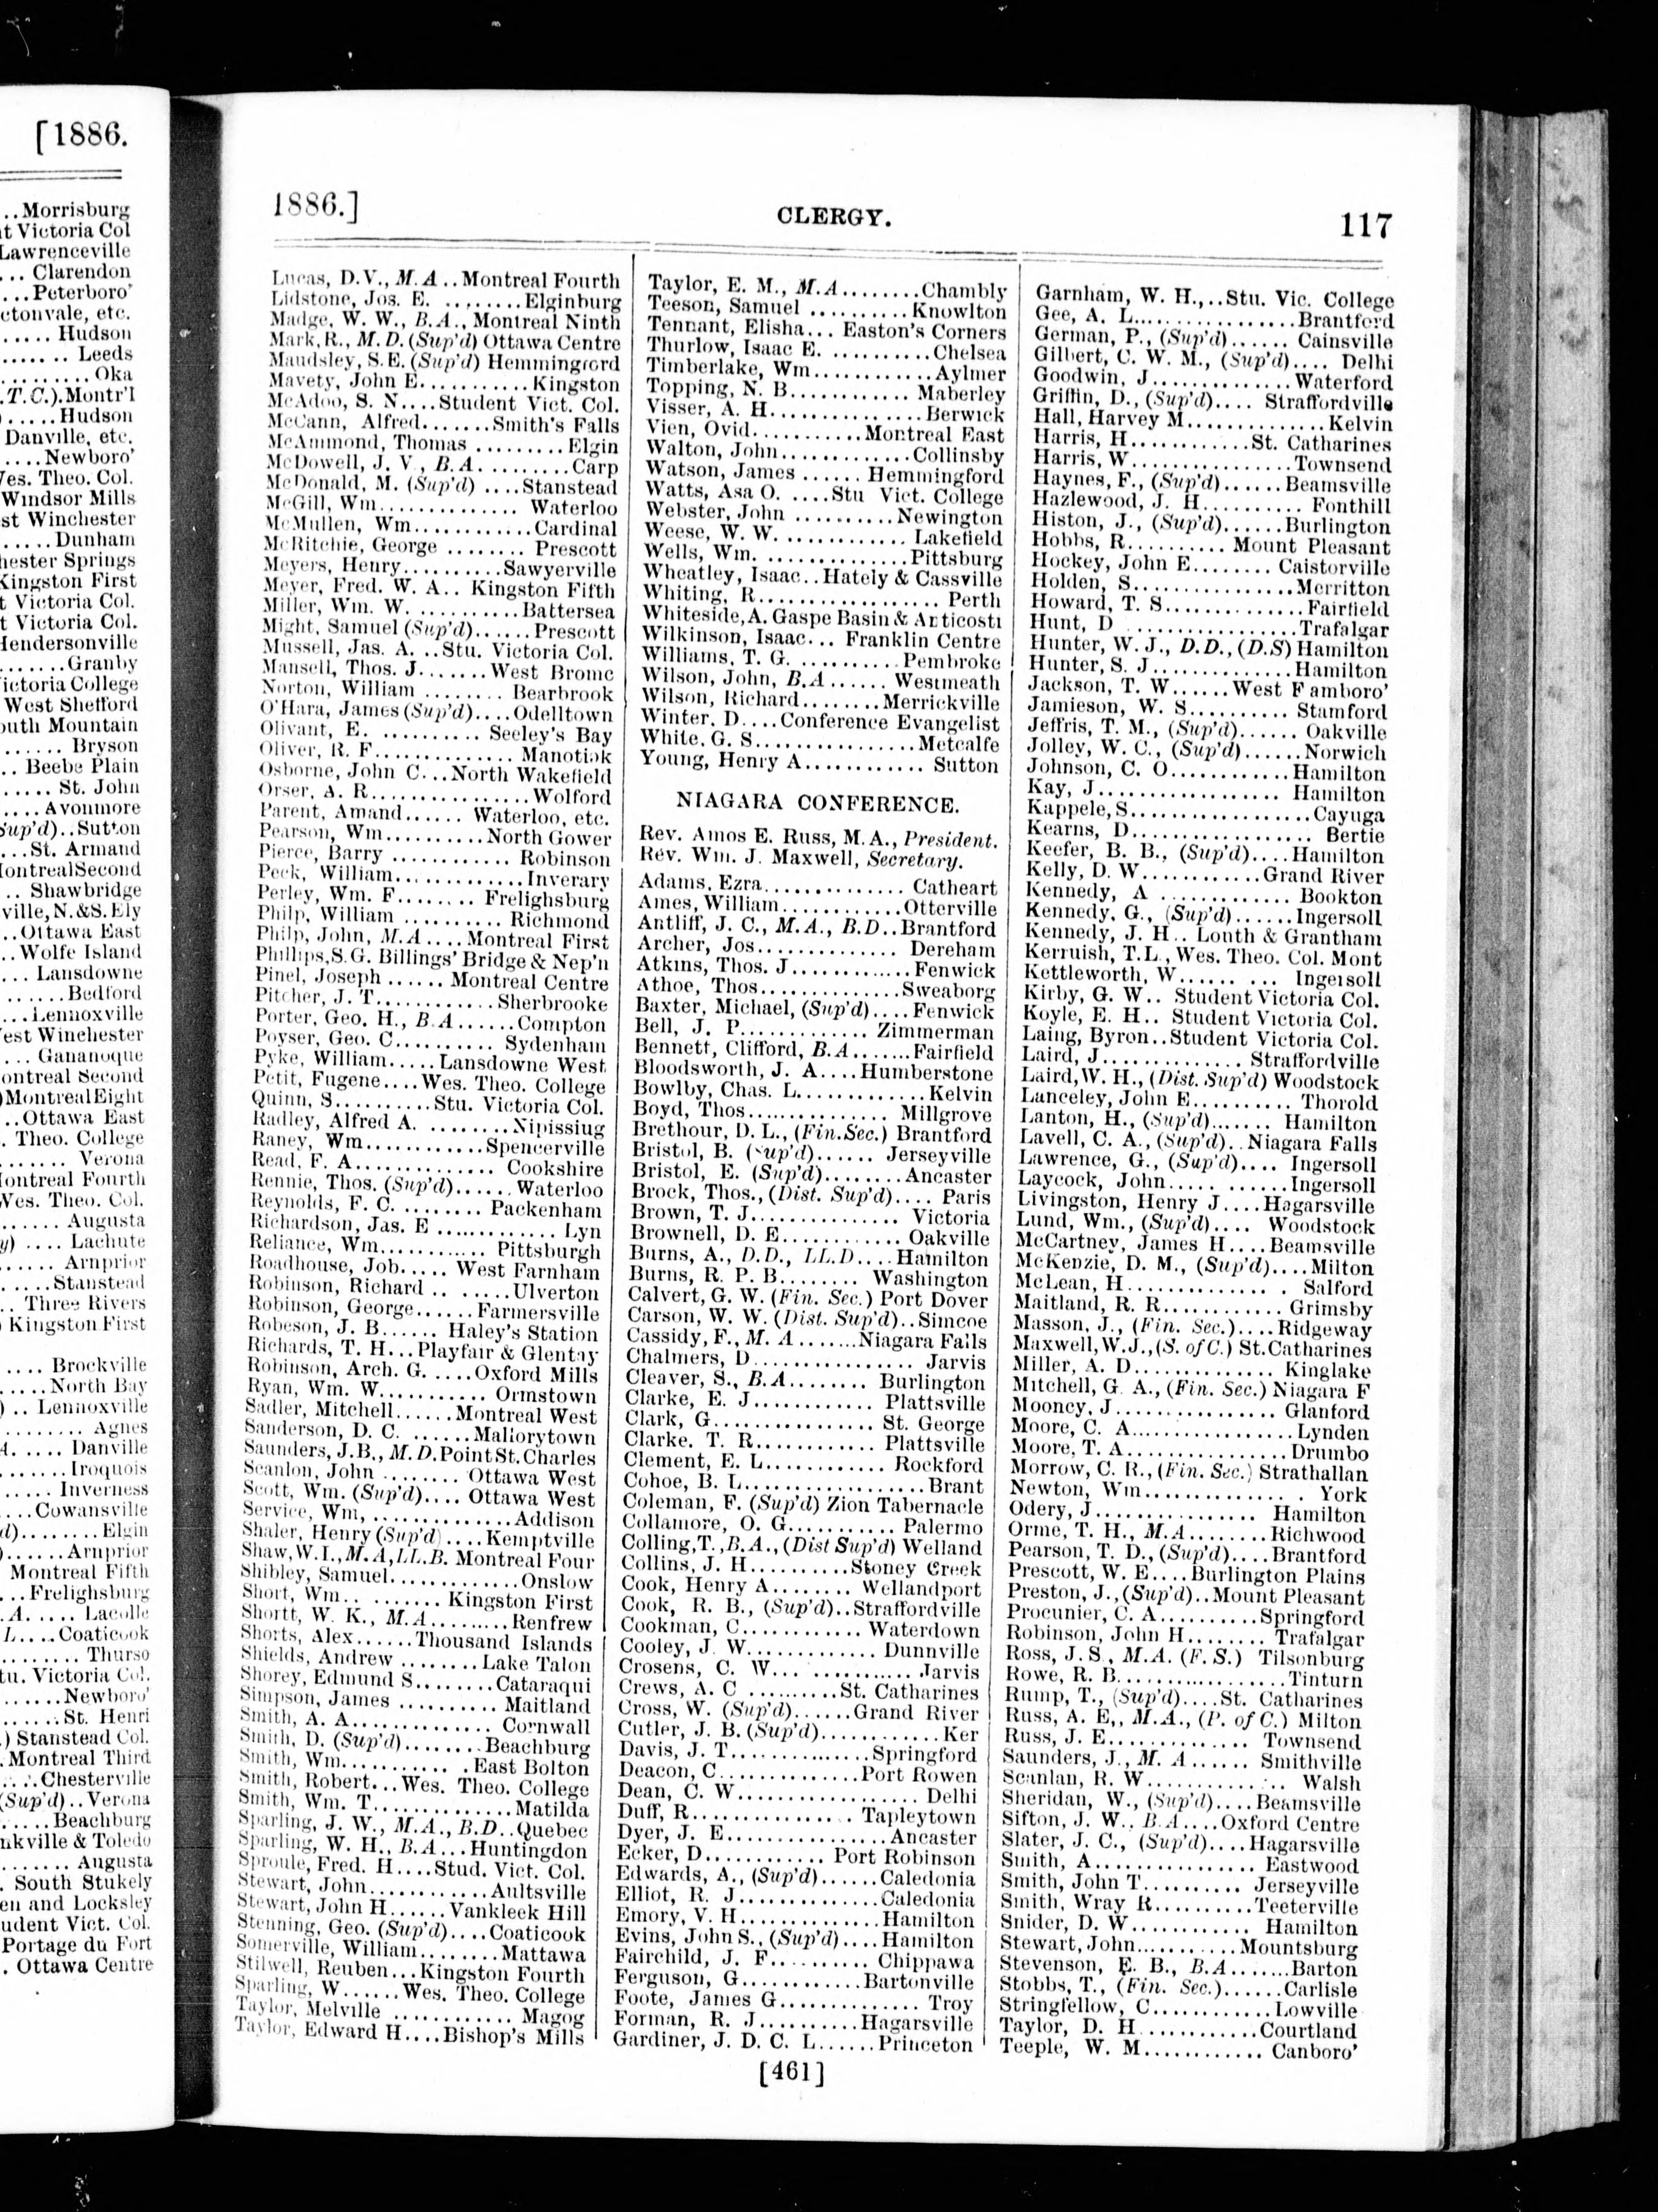 [1886.
..Morrisburg
t Victoria Col
Lawrenceville
... Clarendon
...Peterboro'
ctonvale, etc.
..... Hudson
....... Leeds
.........Oka
.T.C.).Montr'l
).....Hudson
Danville, etc.
....Newboro'
es. Theo. Col.
Windsor Mills
st Winchester
.....Dunham
hester Springs
Kingston First
t Victoria Col.
t Victoria Col.
Hendersonville
.......Granby
ictoria College
West Shefford
outh Mountain
...... Bryson
.. Beebe Plain
..... St. John
....Avonmore
Sup'd)..Sutton
...St. Armand
ontrealSecond
.. Shawbridge
ville,N.&S.Ely
..Ottawa East
..Wolfe Island
... Lansdowne
......Bedford
...Lennoxville
est Winchester
... Gananoque
ontreal Second
)MontrealEight
..Ottawa East
. Theo. College
....... Verona
ontreal Fourth
Wes. Theo. Col.
...... Augusta
y) .... Lachute
...... Arnprior
.....Stanstead
.. Three Rivers
) Kingston First
.... Brockville
.....North Bay
) .. Lennoxville
......... Agnes
A..... Danville
.......Iroquois
..... Inverness
....Cowansville
d)........Elgin
)......Arnprior
Montreal Fifth
...Frelighsburg
.A..... Lacolle
L....Coaticook
......... Thurso
tu. Victoria Col.
......Newboro'
......St. Henri
.) Stanstead Col.
. Montreal Third
...Chesterville
(Sup'd)..Verona
.....Beachburg
nkville & Toledo
....... Augusta
. South Stukely
en and Locksley
udent Vict. Col.
Portage du Fort
. Ottawa Centre
1886.]
CLERGY.
117
Lucas, D.V., M.A..Montreal Fourth
Lidstone, Jos. E. ........Elginburg
Madge, W. W., B.A., Montreal Ninth
Mark,R., M.D. (Sup'd) Ottawa Centre
Maudsley, S.E. (Sup'd) Hemmingford
Mavety, John E...........Kingston
McAdoo, S. N....Student Vict. Col.
McCann, Alfred.......Smith's Falls
McAmmond, Thomas .........Elgin
McDowell, J. V., B.A.........Carp
McDonald, M. (Sup'd) ....Stanstead
McGill, Wm.............. Waterloo
McMullen, Wm............Cardinal
McRitchie, George ........ Prescott
Meyers, Henry..........Sawyerville
Meyer, Fred. W. A.. Kingston Fifth
Miller, Wm. W. ..........Battersea
Might, Samuel (Sup'd)......Prescott
Mussell, Jas. A. ..Stu. Victoria Col.
Mansell, Thos. J.......West Brome
Norton, William ........ Bearbrook
O'Hara, James (Sup'd)....Odelltown
Olivant, E. .......... Seeley's Bay
Oliver, R. F.............. Manotick
Osborne, John C...North Wakefield
Orser, A. R................Wolford
Parent, Amand...... Waterloo, etc.
Pearson, Wm..........North Gower
Pierce, Barry ............ Robinson
Peck, William.............Inverary
Perley, Wm. F........ Frelighsburg
Philp, William .......... Richmond
Philp, John, M.A....Montreal First
Phillips,S.G. Billings' Bridge & Nep'n
Pinel, Joseph ...... Montreal Centre
Pitcher, J. T............Sherbrooke
Porter, Geo. H., B.A......Compton
Poyser, Geo. C.......... Sydenham
Pyke, William.....Lansdowne West
Petit, Fugene....Wes. Theo. College
Quinn, S..........Stu. Victoria Col.
Radley, Alfred A. ........Nipissiug
Raney, Wm............Spencerville
Read, F. A.............. Cookshire
Rennie, Thos. (Sup'd)......Waterloo
Reynolds, F. C. ........ Packenham
Richardson, Jas. E ............. Lyn
Reliance, Wm........... Pittsburgh
Roadhouse, Job..... West Farnham
Robinson, Richard .. ......Ulverton
Robinson, George......Farmersville
Robeson, J. B...... Haley's Station
Richards, T. H...Playfair & Glentay
Robinson, Arch. G. .....Oxford Mills
Ryan, Wm. W........... Ormstown
Sadler, Mitchell......Montreal West
Sanderson, D. C. ......Mallorytown
Saunders, J.B., M.D.Point St.Charles
Scanlon, John ........ Ottawa West
Scott, Wm. (Sup'd).... Ottawa West
Service, Wm, .............Addison
Shaler, Henry (Sup'd)....Kemptville
Shaw,W.I.,M.A,LL.B. Montreal Four
Shibley, Samuel.............Onslow
Short, Wm.. ....... Kingston First
Shortt, W. K., M.A.........Renfrew
Shorts, Alex......Thousand Islands
Shields, Andrew ........Lake Talon
Shorey, Edmund S........Cataraqui
Simpson, James .......... Maitland
Smith, A. A.............. Cornwall
Smith, D. (Sup'd)........Beachburg
Smith, Wm............ .East Bolton
Smith, Robert...Wes. Theo. College
Smith, Wm. T..............Matilda
Sparling, J. W., M.A., B.D..Quebec
Sparling, W. H., B.A...Huntingdon
Sproule, Fred. H....Stud. Vict. Col.
Stewart, John............Aultsville
Stewart, John H......Vankleek Hill
Stenning, Geo. (Sup'd)....Coaticook
Somerville, William........Mattawa
Stilwell, Reuben...Kingston Fourth
Sparling, W......Wes. Theo. College
Taylor, Melville ............ Magog
Taylor, Edward H....Bishop's Mills
Taylor, E. M., M.A........Chambly
Teeson, Samuel .......... Knowlton
Tennant, Elisha... Easton's Corners
Thurlow, Isaac E. ..........Chelsea
Timberlake, Wm............Aylmer
Topping, N. B............ Maberley
Visser, A. H...............Berwick
Vien, Ovid...........Montreal East
Walton, John.............Collinsby
Watson, James ...... Hemmingford
Watts, Asa O. ....Stu Vict. College
Webster, John ..........Newington
Weese, W. W. ............ Lakefield
Wells, Wm. ..............Pittsburg
Wheatley, Isaac..Hately & Cassville
Whiting, R.................. Perth
Whiteside,A. Gaspe Basin & Articosti
Wilkinson, Isaac... Franklin Centre
Williams, T. G. ..........Pembroke
Wilson, John, B.A...... Westmeath
Wilson, Richard........Merrickville
Winter, D....Conference Evangelist
White, G. S................Metcalfe
Young, Henry A............ Sutton
NIAGARA CONFERENCE.
Rev. Amos E. Russ, M.A., President.
Rev. Wm. J. Maxwell, Secretary.
Adams, Ezra.............. Catheart
Ames, William............Otterville
Antliff, J. C., M.A., B.D..Brantford
Archer, Jos.............. Dereham
Atkins, Thos. J............Fenwick
Athoe, Thos..............Sweaborg
Baxter, Michael, (Sup'd)....Fenwick
Bell, J. P............. Zimmerman
Bennett, Clifford, B.A.......Fairfield
Bloodsworth, J. A....Humberstone
Bowlby, Chas. L.............Kelvin
Boyd, Thos............... Millgrove
Brethour, D. L., (Fin.Sec.) Brantford
Bristol, B. (Sup'd)...... Jerseyville
Bristol, E. (Sup'd)........Ancaster
Brock, Thos., (Dist. Sup'd).... Paris
Brown, T. J............... Victoria
Brownell, D. E............Oakville
Burns, A., D.D., LL.D....Hamilton
Burns, R. P. B........ Washington
Calvert, G. W. (Fin. Sec.) Port Dover
Carson, W. W. (Dist. Sup'd)..Simcoe
Cassidy, F., M. A.......Niagara Falls
Chalmers, D................ Jarvis
Cleaver, S., B.A........ Burlington
Clarke, E. J............ Plattsville
Clark, G................ St. George
Clarke. T. R............ Plattsville
Clement, E. L............ Rockford
Cohoe, B. L..................Brant
Coleman, F. (Sup'd) Zion Tabernacle
Collamore, O. G........... Palermo
Colling,T.,B.A., (Dist Sup'd) Welland
Collins, J. H..........Stoney Creek
Cook, Henry A........ Wellandport
Cook, R. B., (Sup'd)..Straffordville
Cookman, C............ Waterdown
Cooley, J. W............. Dunnville
Crosens, C. W... ...........Jarvis
Crews, A. C ..........St. Catharines
Cross, W. (Sup'd)......Grand River
Cutler, J. B. (Sup'd)............Ker
Davis, J. T..............Springford
Deacon, C..............Port Rowen
Dean, C. W.................. Delhi
Duff, R................ Tapleytown
Dyer, J. E................Ancaster
Ecker, D............ Port Robinson
Edwards, A., (Sup'd)......Caledonia
Elliot, R. J..............Caledonia
Emory, V. H..............Hamilton
Evins, John S., (Sup'd)....Hamilton
Fairchild, J. F.......... Chippawa
Ferguson, G............Bartonville
Foote, James G.............. Troy
Forman, R. J..........Hagarsville
Gardiner, J. D. C. L......Princeton
Garnham, W. H.,..Stu. Vic. College
Gee, A. L................Brantford
German, P., (Sup'd)...... Cainsville
Gilbert, C. W. M., (Sup'd).... Delhi
Goodwin, J..............Waterford
Griffin, D., (Sup'd).... Straffordville
Hall, Harvey M..............Kelvin
Harris, H............St. Catharines
Harris, W................Townsend
Haynes, F., (Sup'd)......Beamsville
Hazlewood, J. H.......... Fonthill
Histon, J., (Sup'd)......Burlington
Hobbs, R.......... Mount Pleasant
Hockey, John E........ Caistorville
Holden, S................Merritton
Howard, T. S..............Fairfield
Hunt, D .................Trafalgar
Hunter, W. J., D.D., (D.S) Hamilton
Hunter, S. J..............Hamilton
Jackson, T. W......West F amboro'
Jamieson, W. S.......... Stamford
Jeffris, T. M., (Sup'd)...... Oakville
Jolley, W. C., (Sup'd)......Norwich
Johnson, C. O............Hamilton
Kay, J.................. Hamilton
Kappele, S..................Cayuga
Kearns, D.................. Bertie
Keefer, B. B., (Sup'd)....Hamilton
Kelly, D. W............Grand River
Kennedy, A ............. Bookton
Kennedy, G., (Sup'd)......Ingersoll
Kennedy, J. H.. Louth & Grantham
Kerruish, T.L., Wes. Theo. Col. Mont
Kettleworth, W...... ... Ingersoll
Kirby, G. W.. Student Victoria Col.
Koyle, E. H.. Student Victoria Col.
Laing, Byron..Student Victoria Col.
Laird, J.............. Straffordville
Laird, W. H., (Dist. Sup'd) Woodstock
Lanceley, John E.......... Thorold
Lanton, H., (Sup'd)....... Hamilton
Lavell, C. A., (Sup'd). .Niagara Falls
Lawrence, G., (Sup'd).... Ingersoll
Laycock, John...... ......Ingersoll
Livingston, Henry J....Hagarsville
Lund, Wm., (Sup'd).... Woodstock
McCartney, James H....Beamsville
McKenzie, D. M., (Sup'd)....Milton
McLean, H............... . Salford
Maitland, R. R............Grimsby
Masson, J., (Fin. Sec.)....Ridgeway
Maxwell, W.J.,(S. of C.) St.Catharines
Miller, A. D.............. Kinglake
Mitchell, G. A., (Fin. Sec.) Niagara F
Mooney, J................ Glanford
Moore, C. A................Lynden
Moore, T. A................Drumbo
Morrow, C. R., (Fin. Sec.) Strathallan
Newton, Wm.............. . York
Odery, J................ Hamilton
Orme, T. H., M.A........Richwood
Pearson, T. D., (Sup'd)....Brantford
Prescott, W. E....Burlington Plains
Preston, J., (Sup'd)..Mount Pleasant
Procunier, C. A..........Springford
Robinson, John H........ Trafalgar
Ross, J. S., M.A. (F. S.) Tilsonburg
Rowe, R. B.................Tinturn
Rump, T., (Sup'd)....St. Catharines
Russ, A. E,, M.A., (P. of C.) Milton
Russ, J. E.............. Townsend
Saunders, J., M. A...... Smithville
Scanlan, R. W............... Walsh
Sheridan, W., (Sup'd)....Beamsville
Sifton, J. W.. B.A....Oxford Centre
Slater, J. C., (Sup'd)....Hagarsville
Smith, A................ Eastwood
Smith, John T.......... Jerseyville
Smith, Wray R..........Teeterville
Snider, D. W............ Hamilton
Stewart, John..........Mountsburg
Stevenson, E. B., B.A.......Barton
Stobbs, T., (Fin. Sec.)......Carlisle
Stringfellow, C............Lowville
Taylor, D. H............Courtland
Teeple, W. M............ Canboro'
[461]